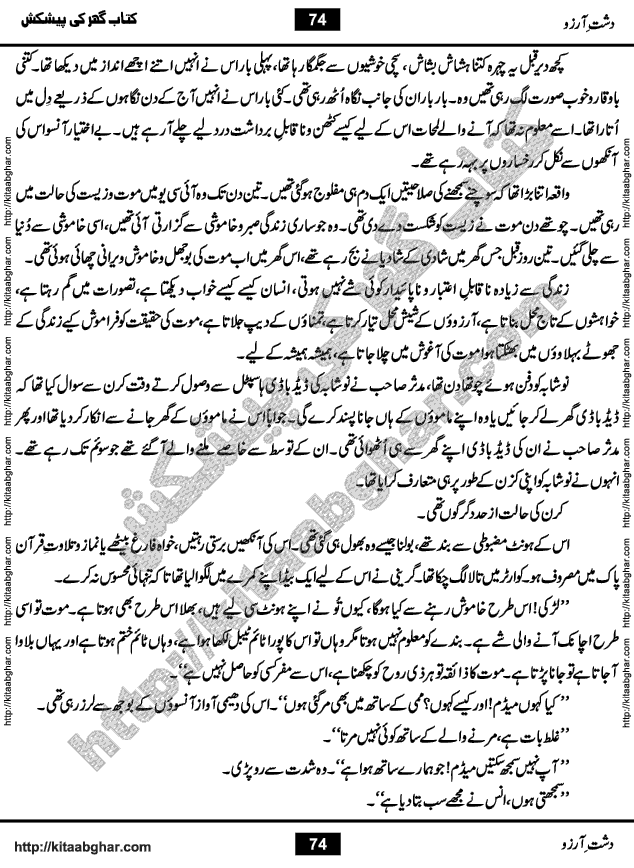 کتاب گھر کی پیشکش 74 دشتِ آرزو
کچھ دیر قبل یہ چہرہ کتنا ہشاش بشاش، سچی خوشیوں سے جگمگا رہا تھا، پہلی بار اس نے انہیں اتنے اچھے انداز میں دیکھا تھا۔ کتنی
باوقار و خوب صورت لگ رہی تھیں وہ۔ بار بار ان کی جانب نگاہ اُٹھ رہی تھی۔ کئی بار اس نے انہیں آج کے دن نگاہوں کے ذریعے دِل میں
اُتارا تھا۔ اسے معلوم نہ تھا کہ آنے والے لمحات اس کے لیے کیسے کٹھن و ناقابلِ برداشت درد لیے چلے آ رہے ہیں۔ بے اختیار آنسو اس کی
آنکھوں سے نکل کر رخساروں پر بہہ رہے تھے۔
واقعہ اتنا بڑا تھا کہ سوچنے سمجھنے کی صلاحیتیں ایک دم ہی مفلوج ہو گئی تھیں۔ تین دن تک وہ آئی سی یو میں موت و زیست کی حالت میں
رہی تھیں۔ چوتھے دن موت نے زیست کو شکست دے دی تھی۔ وہ جو ساری زندگی صبر و خاموشی سے گزارتی آئی تھیں، اسی خاموشی سے دُنیا
سے چلی گئیں۔ تین روز قبل جس گھر میں شادی کے شادیانے بج رہے تھے، اس گھر میں اب موت کی بوجھل و خاموش ویرانی چھائی ہوئی تھی۔
زندگی سے زیادہ ناقابلِ اعتبار و ناپائیدار کوئی شے نہیں ہوتی، انسان کیسے کیسے خواب دیکھتا ہے، تصورات میں گم رہتا ہے،
خواہشوں کے تاج محل بناتا ہے، آرزوؤں کے شیش محل تیار کرتا ہے، تمناؤں کے دیپ جلاتا ہے، موت کی حقیقت کو فراموش کیے زندگی کے
جھوٹے بہلاوؤں میں بھٹکتا ہوا موت کی آغوش میں چلا جاتا ہے، ہمیشہ ہمیشہ کے لیے۔
نوشابہ کو دفن ہوئے چوتھا دن تھا، مدثر صاحب نے نوشابہ کی ڈیڈ باڈی ہاسپٹل سے وصول کرتے وقت کرن سے سوال کیا تھا کہ
ڈیڈ باڈی گھر لے کر جائیں یا وہ اپنے ماموؤں کے ہاں جانا پسند کرے گی۔ جواباً اس نے ماموؤں کے گھر جانے سے انکار کر دیا تھا اور پھر
مدثر صاحب نے ان کی ڈیڈ باڈی اپنے گھر سے ہی اُٹھوائی تھی۔ ان کے توسط سے خاصے ملنے والے آ گئے تھے جو سوئم تک رہے تھے۔
انہوں نے نوشابہ کو اپنی کزن کے طور پر ہی متعارف کرایا تھا۔
کرن کی حالت از حد دگرگوں تھی۔
اس کے ہونٹ مضبوطی سے بند تھے، بولنا جیسے وہ بھول ہی گئی تھی۔ اس کی آنکھیں برستی رہتیں، خواہ فارغ بیٹھے یا نماز و تلاوتِ قرآن
پاک میں مصروف ہو۔ کوارٹر میں تالا لگ چکا تھا۔ گرینی نے اس کے لیے ایک بیڈ اپنے کمرے میں لگوا لیا تھا تاکہ تنہائی محسوس نہ کرے۔
’’لڑکی! اس طرح خاموش رہنے سے کیا ہوگا، کیوں تُو نے اپنے ہونٹ سی لیے ہیں، بھلا اس طرح بھی ہوتا ہے۔ موت تو اسی
طرح اچانک آنے والی شے ہے۔ بندے کو معلوم نہیں ہوتا مگر وہاں تو اس کا پورا ٹائم ٹیبل لکھا ہوا ہے، وہاں ٹائم ختم ہوتا ہے اور یہاں بلاوا
آ جاتا ہے تو جانا پڑتا ہے۔ موت کا ذائقہ تو ہر ذی روح کو چکھنا ہے، اس سے مفر کسی کو حاصل نہیں ہے‘‘۔
’’کیا کہوں میڈم! اور کیسے کہوں؟ ممی کے ساتھ میں بھی مر گئی ہوں‘‘۔ اس کی دھیمی آواز آنسوؤں کے بوجھ سے لرز رہی تھی۔
’’غلط بات ہے، مرنے والے کے ساتھ کوئی نہیں مرتا‘‘۔
’’آپ نہیں سمجھ سکتیں میڈم! جو ہمارے ساتھ ہوا ہے‘‘۔ وہ شدت سے رو پڑی۔
’’سمجھتی ہوں، انس نے مجھے سب بتا دیا ہے‘‘۔
http://kitaabghar.com 74 دشتِ آرزو
http://kitaabghar.com
http://kitaabghar.com
http://kitaabghar.com
http://kitaabghar.com
http://kitaabghar.com
http://kitaabghar.com
http://kitaabghar.com
http://kitaabghar.com
http://kitaabghar.com
http://kitaabghar.com
http://kitaabghar.com
http://kitaabghar.com
کتاب گھر کی پیشکش
http://kitaabghar.com